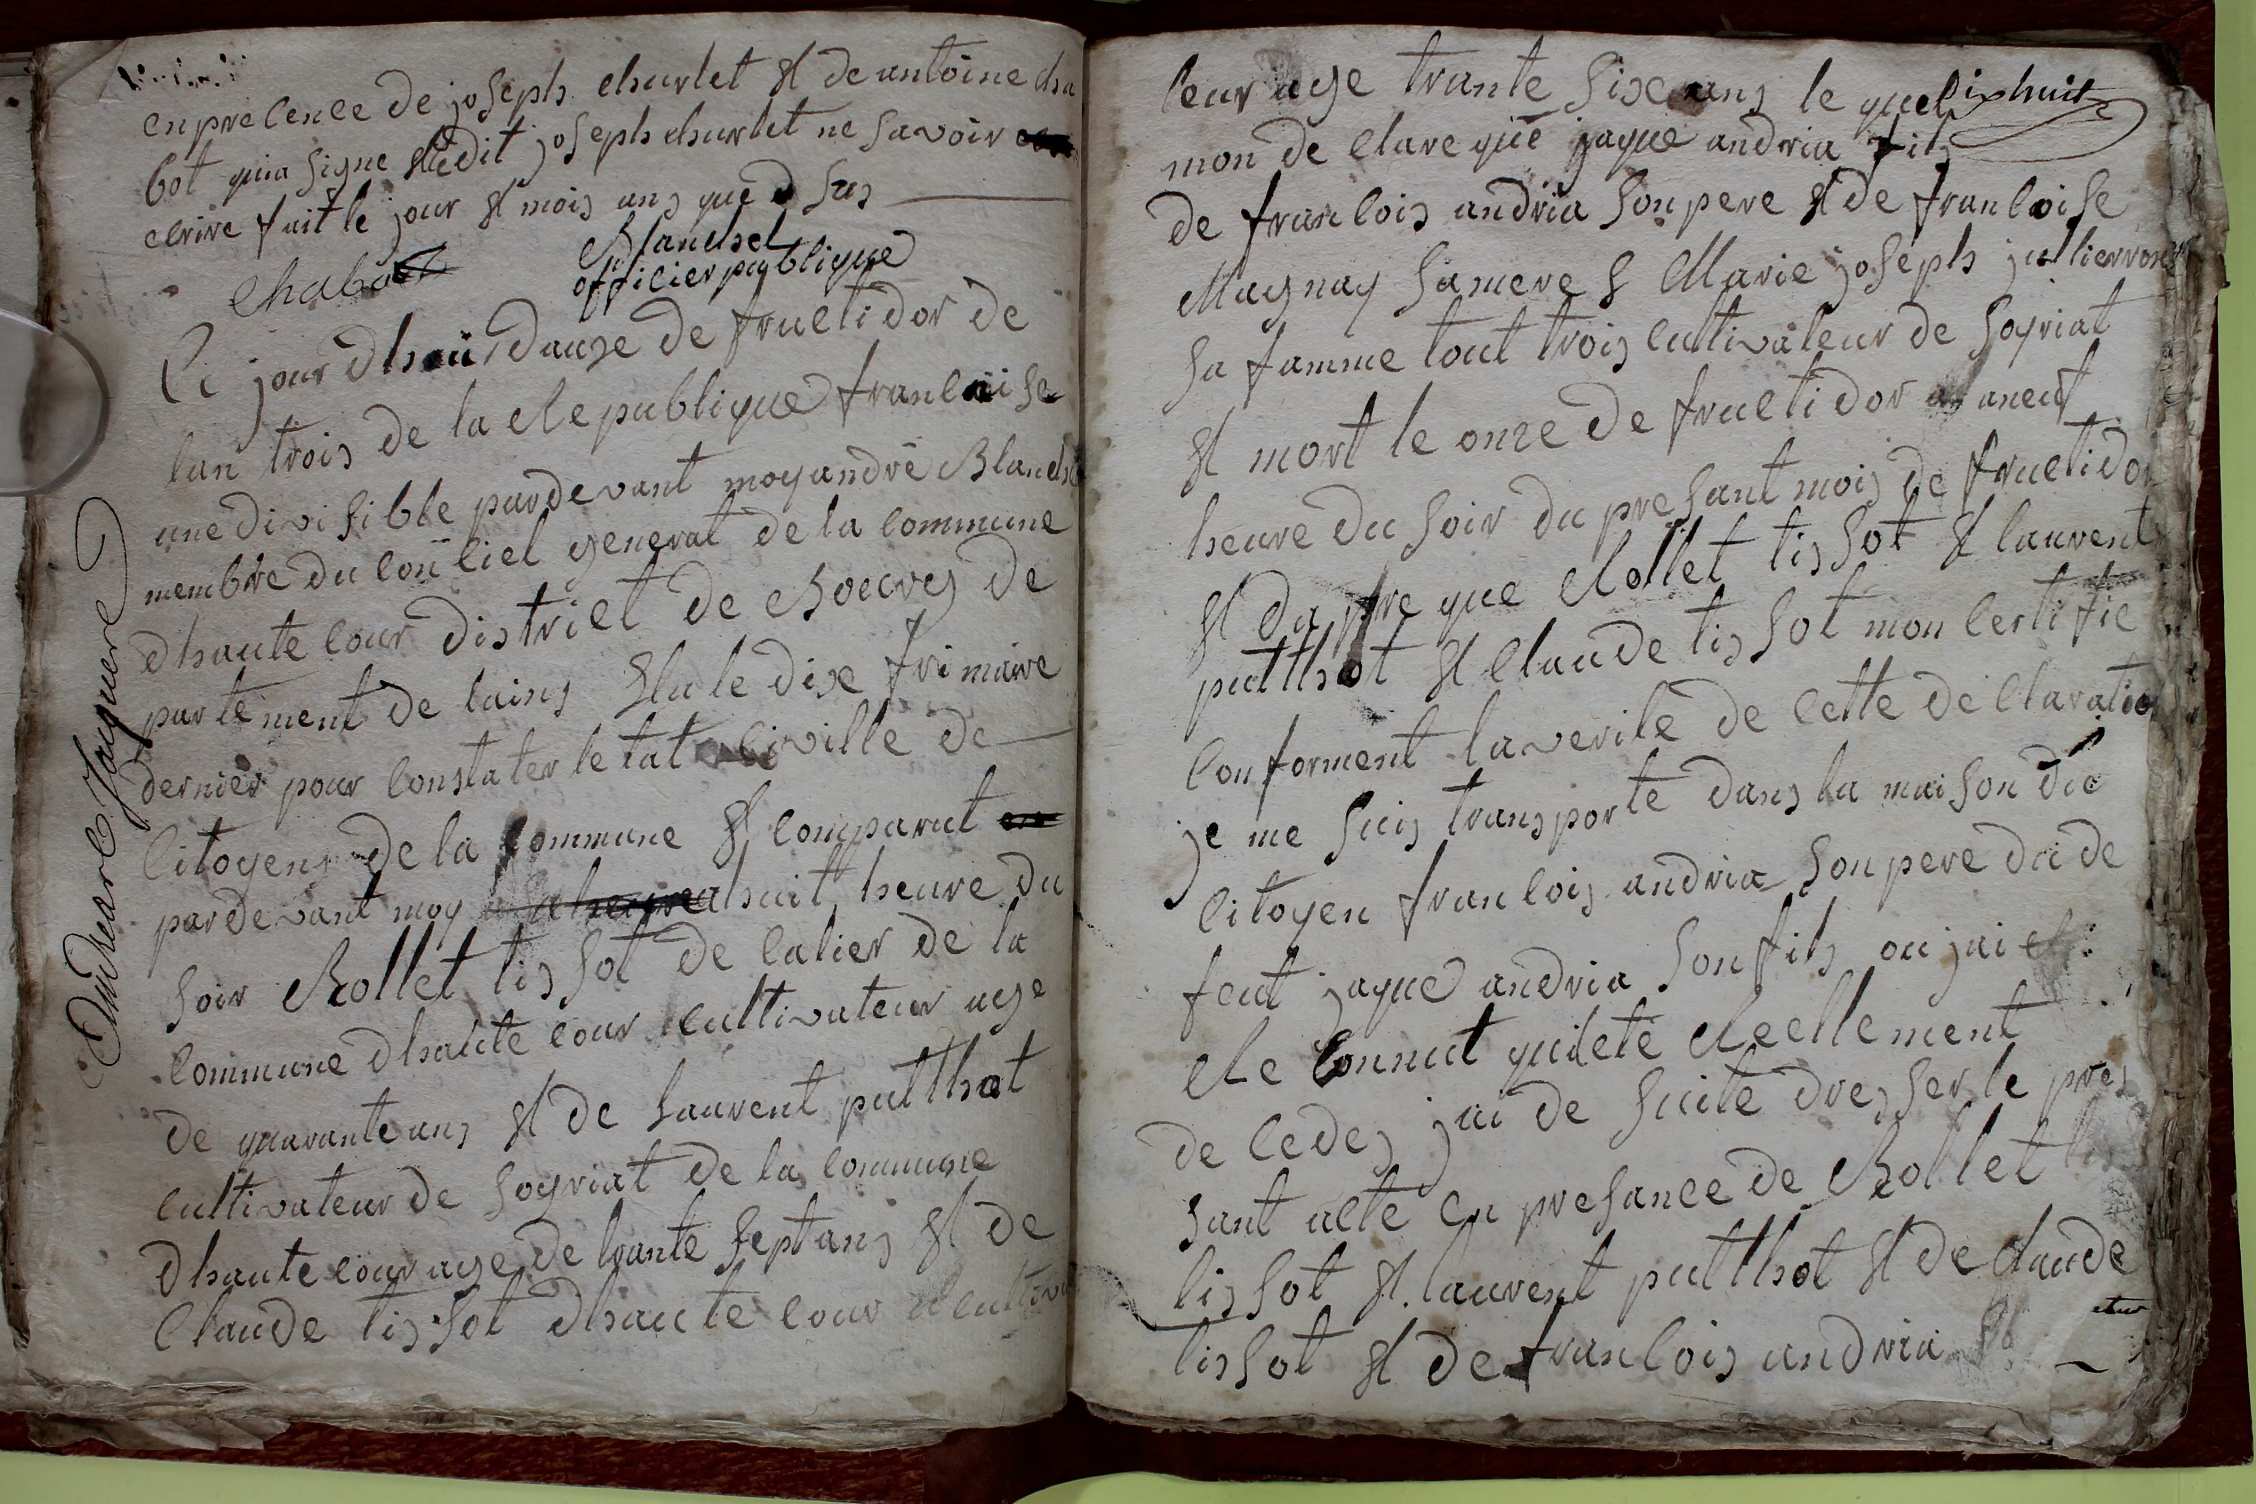 enprecence de joseph charlet & de antoine cha
bot quia signe & ledit joseph charlet ne savoir
ecrire fait le jour & mois ans que d sus
Chabot
Blanchet
officier publique
Ce jour dhuis dauze de fructidor de
lan trois de la Republique francaise
une divisible pardevant moy andré Blanche
membre du conciel general de la commune
dhautecour district de Bourg de
partement de lains elu le dixe frimaire
dernier pour constater letat civille de
citoyens de la commune & comparut
pardevant moy a huit heure du
soir Rollet tissot de calier de la
commune dhautecour cultivateur age
de quarante ans & de laurent putthot
cultivateur de soyriat de la commune
dhautecour age de trante sept ans & de
Claude tissot dhautecour cultiva
Andrea Jaquere
leur age trante sixe ans le quel
ix huit
mon declare que jaque andria fils
de francois andria son pere & de francoise
Magnay samere & Marie joseph jullierron
sa famme tout trois cultivateur de soyriat
& mort le onze de fructidor a neuf
heure du soir du presant mois de fructidor
& dapre que Rollet tissot & laurent
putthot & Claude tissot mon certifie
conforment la verite de cette declaratio
je me suis transporte dans la maison du
citoyen francois andria son pere du de
feut jaque andria son fils ou jai
Reconnut quilete Reellement
decedes jai de suite dresser le pres
sant acte en presance de Rollet tis
tissot & laurent putthot & de claude
tissot & de francois andria